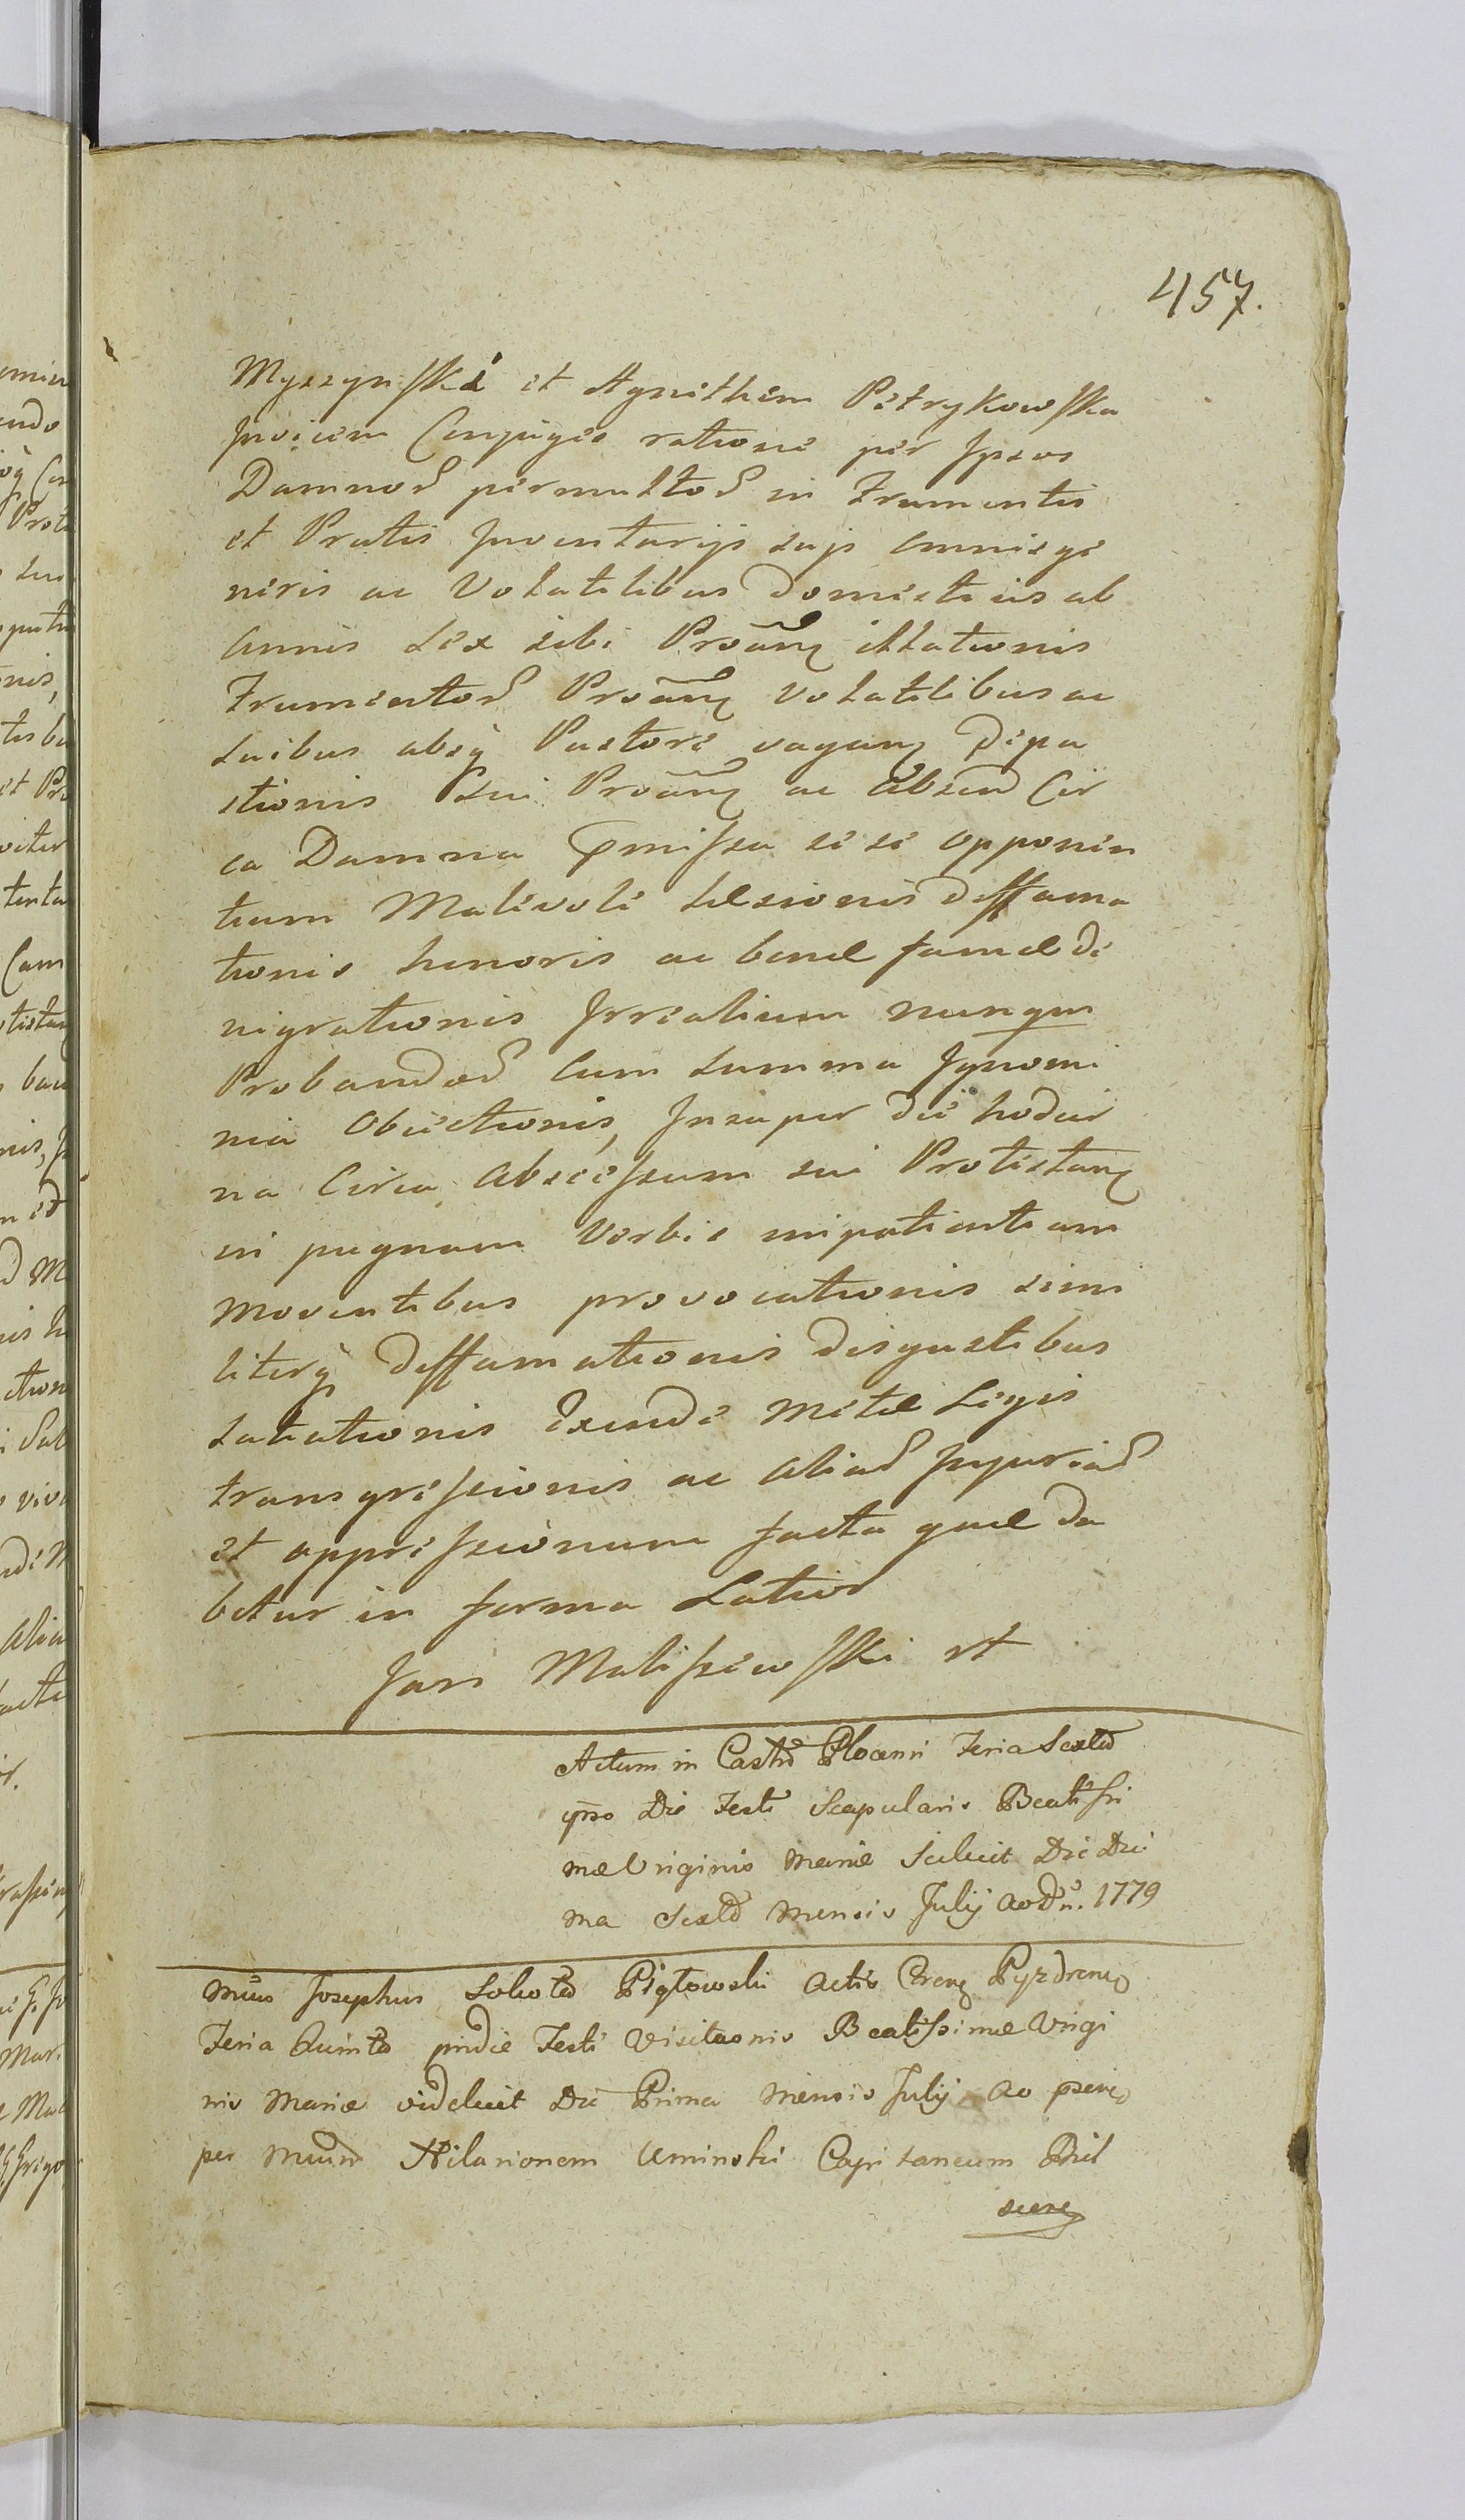 457.
Myszynski et Agnithem Petrykowska
Invicem Conjuges ratione per Ipsos
Damnor permultor in Frumentis
et Pratis Inventarijs sujs omnisge
neris ac Volatilibus domesticis ab
Annis sex sibi Proãnt illationis
Frumentor Proãnt volatilibus ac
suibus absq Pastore vagant depa
stionis Sui Proãnt ac Absend Cir
ca Damna pmissa se se opponen
tium Malevole lesionis deffama
tionis honoris ac bonæ famæ de
nigrationis Irrealium nunqm
Probandor cum summa Ignomi
nia Obiectionis, Insuper die hodier
na Circa Abscessum sui Protestant
in pugnam Verbis inpatientiam
moventibus provocationis simi
literq deffamationis disgustibus
satiationis Exinde metæ Legis
transgressionis ac aliar Injuriar
et oppressionum facta quæ da
betur in forma Latior
Jan Maliszewski mp
Actum in Castro Plocen Feria Sexta
ipso Die Festi Scapularis Beatissi
mæ Virginis Mariæ Scilicet Die Deci
ma Sexta Mensis Julij Ao Dn. 1779
Mcus Josephus Piglowski Actis Cren Pyzdren
Feria Quinta pridie Festi Visitaonis Beatissimæ Virgi
nis Mariæ videlicet Die Prima Mensis Julij Ao psen
per Mcum Hilarionem Uminski Capitaneum